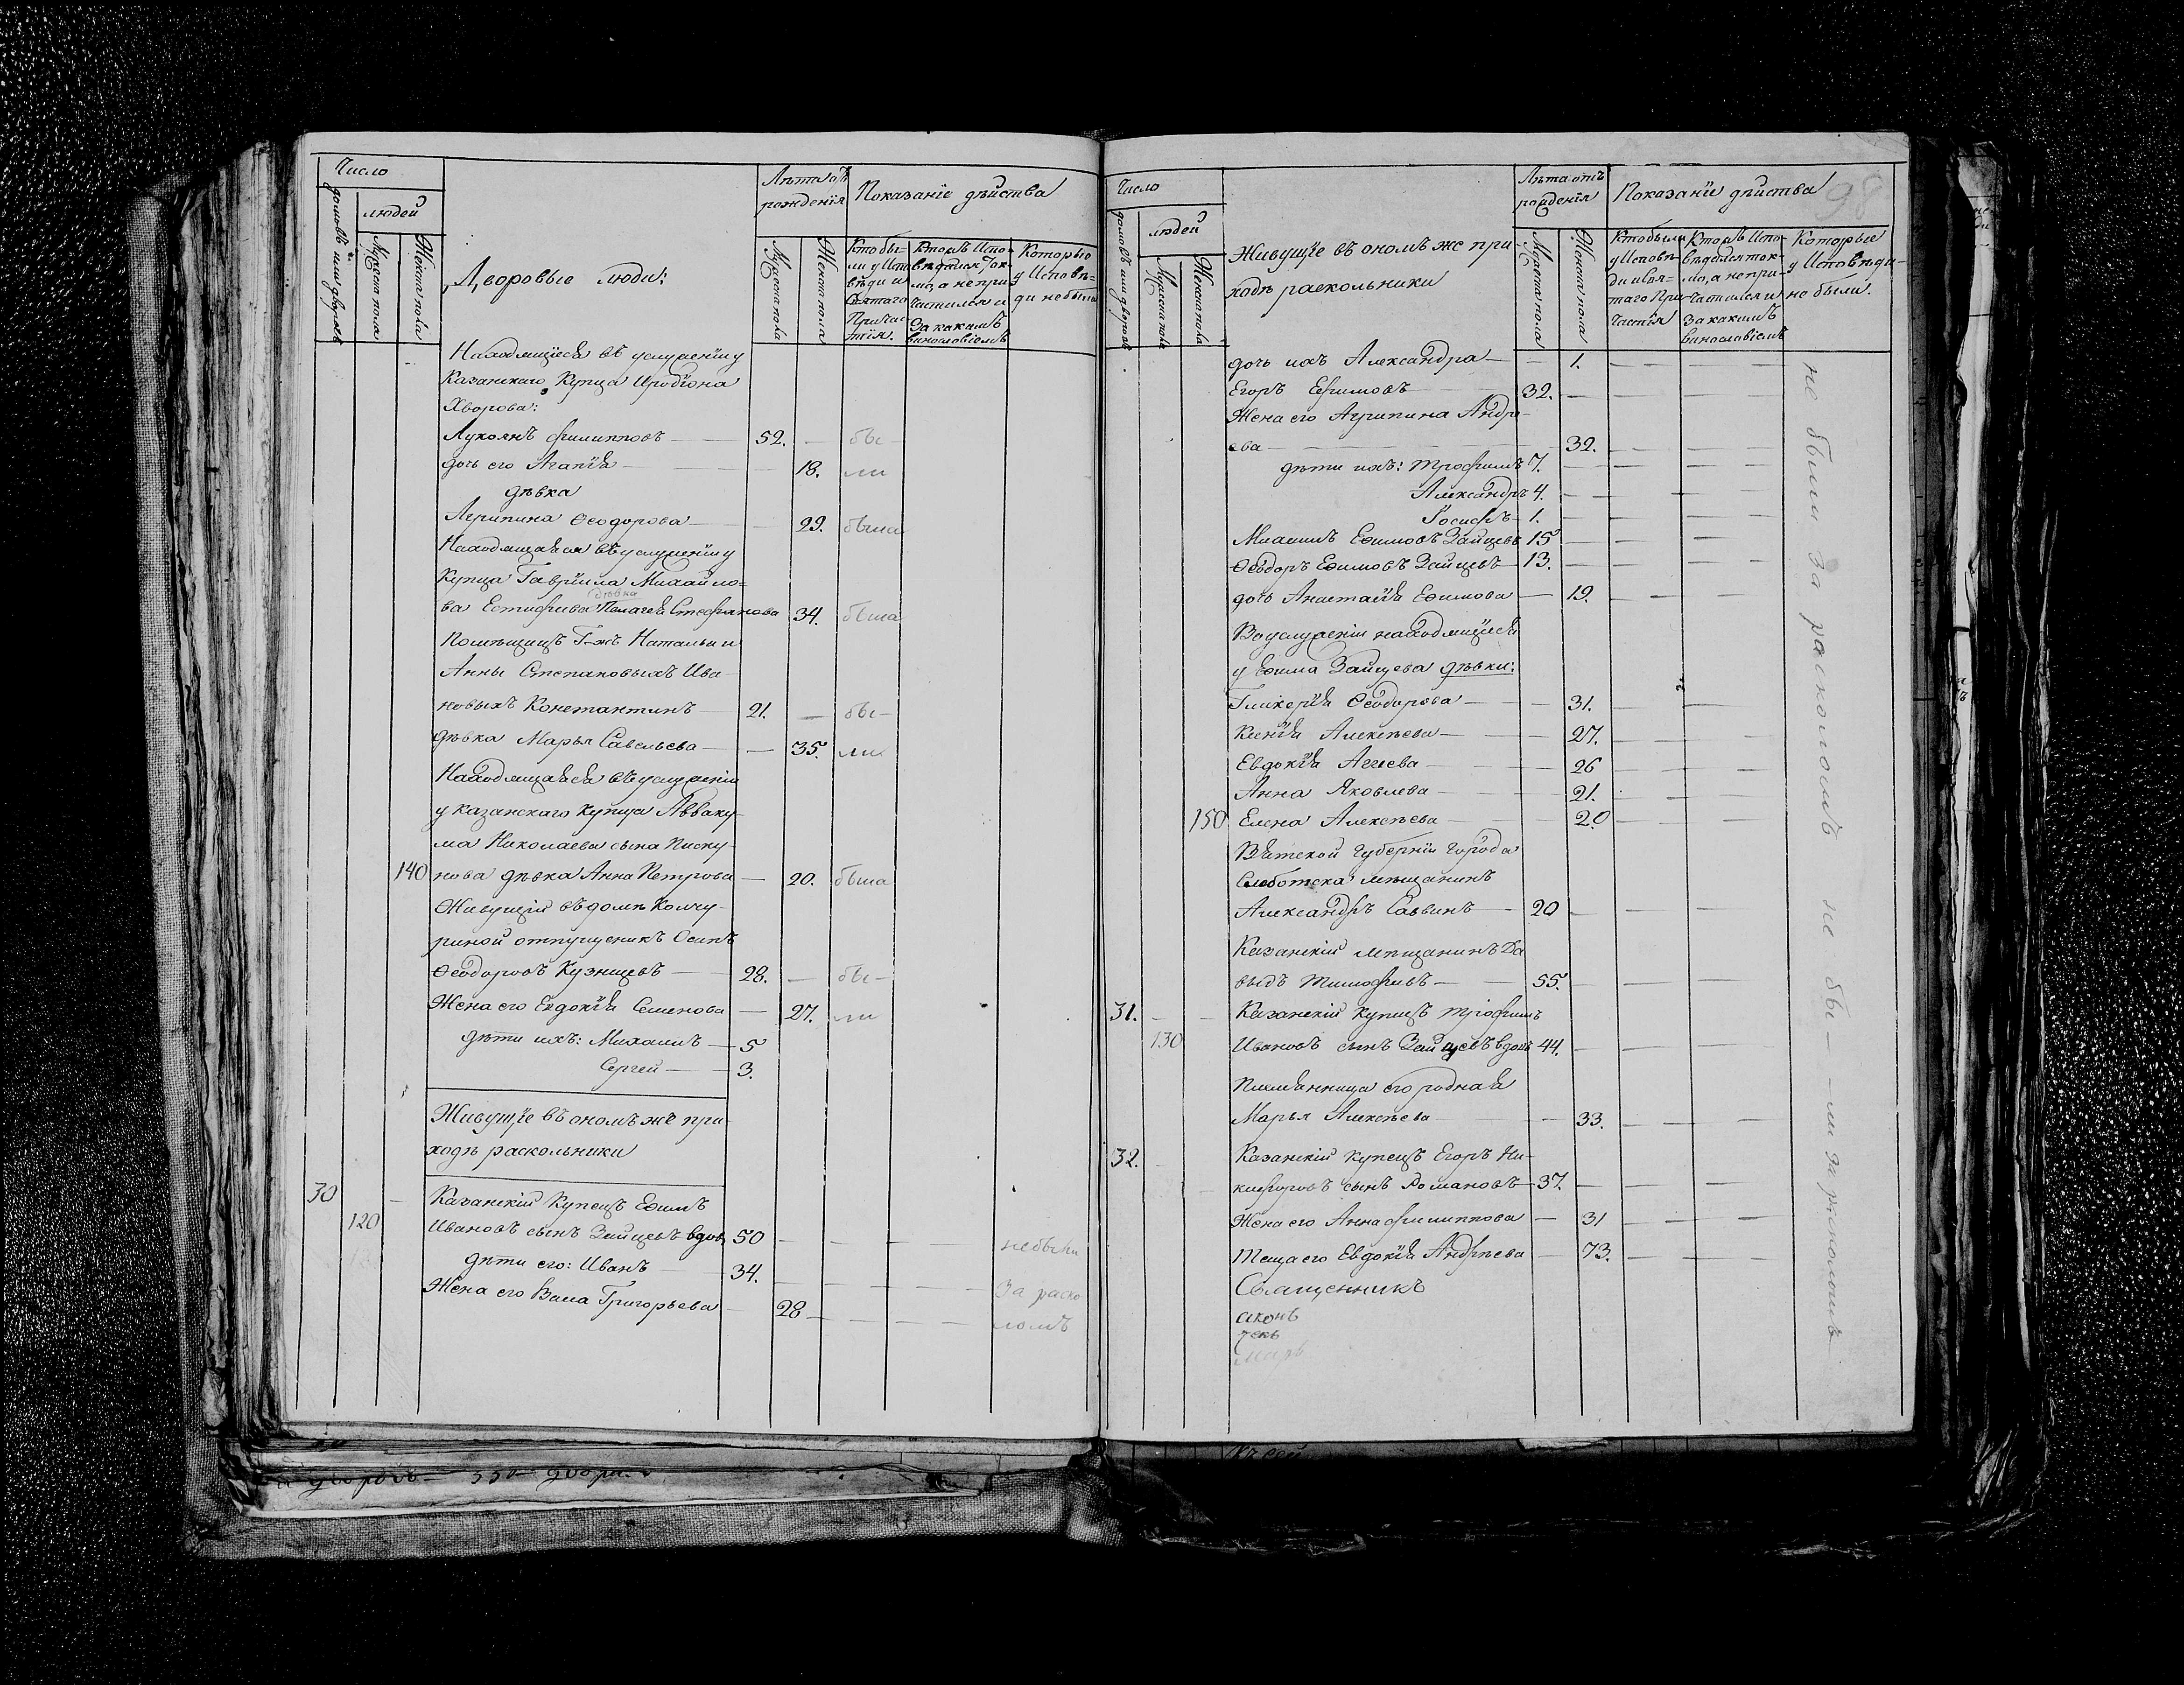 Число
людей
домовъ или дворовъ
Мужеска пола
Женска пола
Дворовые люди:
Лѣта отъ
рожденія
Мужеска пола
Женска пола
Показаніе дѣйства
Кто бы-
ли у Испо
вѣди и
Святаго
Прича-
стія.
Кто изъ Испо-
вѣдался ток
мо, а не при
частился и
За какимъ
винословіемъ
Которые
у Исповѣ-
ди не были
Находящіися въ услуженіи у
Казанскаго Купца Иродіона
Хворова:
Лукоянъ Филипповъ — 52. — бы-
дочь его Агапія — 18. ли
дѣвка
Агрипина Ѳеодорова — 29. была
Находящаяся въ услуженіи у
Купца Гавріила Михайло-
дѣвка
ва Естифѣева Пелагея Стефанова 34. была
Помѣщицъ Г-жъ Натальи и
Анны Степановыхъ Ива-
новыхъ Константинъ 21. — бы-
дѣвка Марья Савельева — 35. ли
Находящаяся въ услуженіи
у Казанскаго Купца Авваку-
ма Николаева сына Писку-
140 нова дѣвка Анна Петрова — 20. была
Живущій въ домѣ Колчу-
риной отпущеникъ Осипъ
Ѳеодоровъ Кузнецовъ — 28. — бы-
Жена его Евдокія Семенова — 27. ли
дѣти ихъ: Михаилъ — 5
Сергей — 3.
Живущіе въ ономъ же при-
ходѣ раскольники
30 — Казанскій Купецъ Ефимъ
120 Ивановъ сынъ Зайцевъ вдов. 50 — — — небыли
дѣти его: Иванъ — 34. — — — За раско
Жена его Васа Григорьева — 28 — — — ломъ
98
Число
людей
домовъ или дворовъ
Мужеска пола
Женска пола
Живущіе въ ономъ же при-
ходѣ раскольники
Лѣта отъ
рожденія
Мужеска пола
Женска пола
Показаніе дѣйства
Кто были
у Исповѣ-
ди и Свя-
таго При-
частія
Кто изъ Испо-
вѣдался ток-
мо, а не при-
частился и
За какимъ
винословіемъ
Которые
у Исповѣди
не были.
дочь ихъ Александра — 1. — — —
Егоръ Ефимовъ 32. — — —
Жена его Агрипина Андре-
ева — 32. — — —
дѣти ихъ: Трофимъ 7. — — —
Александръ 4. — — —
Іосифъ — 1. — — —
Михаилъ Ефимовъ Зайцевъ 15 — — —
Ѳеодоръ Ефимовъ Зайцевъ 13. — — —
дочь Анастасія Ефимова — 19. — — —
Въ услуженіи находящіися
у Ефима Зайцева дѣвки:
Гликерія Ѳеодорова — 31. — —
Ксенія Алексѣева — 27. — —
Евдокія Агеева — 26 — —
Анна Яковлева — 21. — —
150 Елена Алексѣева — 20 — — —
Вятской Губерніи Города
Слоботска мѣщанинъ
Александръ Саввинъ — 20 — — —
Казанскій мѣщанинъ Да
выдъ Тимофѣевъ — 55. — — —
31. — — Казанскій Купецъ Трофимъ
130 Ивановъ сынъ Зайцевъ вдовъ 44. — — —
Племянница его родная
Марья Алексѣева — 33. — — —
32. — Казанскій Купецъ Егоръ Ни-
кифоровъ сынъ Романовъ 37. — — —
Жена его Анна Филиппова — 31 — — —
Теща его Евдокія Андрѣева — 73. — — —
Священникъ
аконъ
чекъ
марь
не были за расколомъ не бы — ли за расколомъ